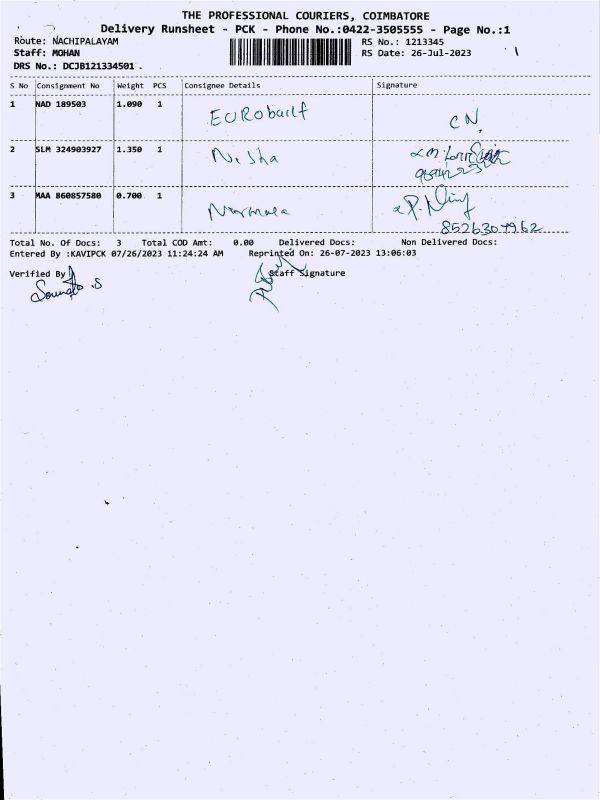 THE PROFESSIONAL COURIERS, COIMBATORE
Delivery Runsheet - PCK - Phone No.:0422-3505555 - Page No.:1
Route: NACHIPALAYAM RS No.: 1213345
Staff: MOHAN RS Date: 26-Jul-2023
DRS No.: DCJB121334501 .
S No Consignment No Weight PCS Consignee Details Signature
1 NAD 189503 1.090 1 EURObuilt CN.
2 SLM 324903927 1.350 1 Nisha
3 MAA 860857580 0.700 1 Nirmala
8526307962
Total No. Of Docs: 3 Total COD Amt: 0.00 Delivered Docs: Non Delivered Docs:
Entered By :KAVIPCK 07/26/2023 11:24:24 AM Reprinted On: 26-07-2023 13:06:03
Verified By Staff Signature